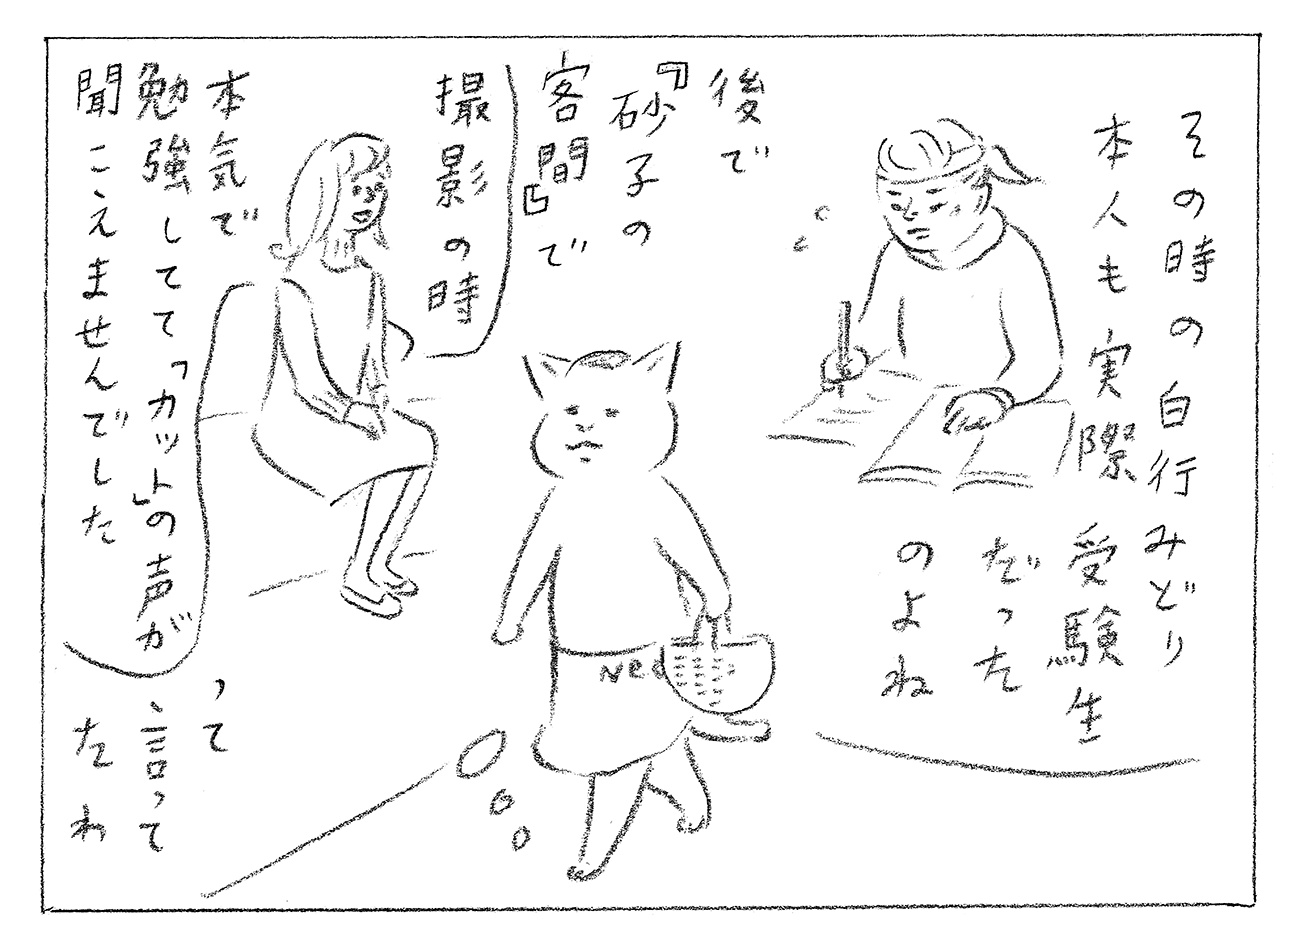 その時の白行みどり
本人も実際
受験生
だった
のよね
後で
『砂子の
客間』で
撮影の時
本気で
勉強してて「カット」の声が
聞こえませんでした
って
言って
たわ
Neo